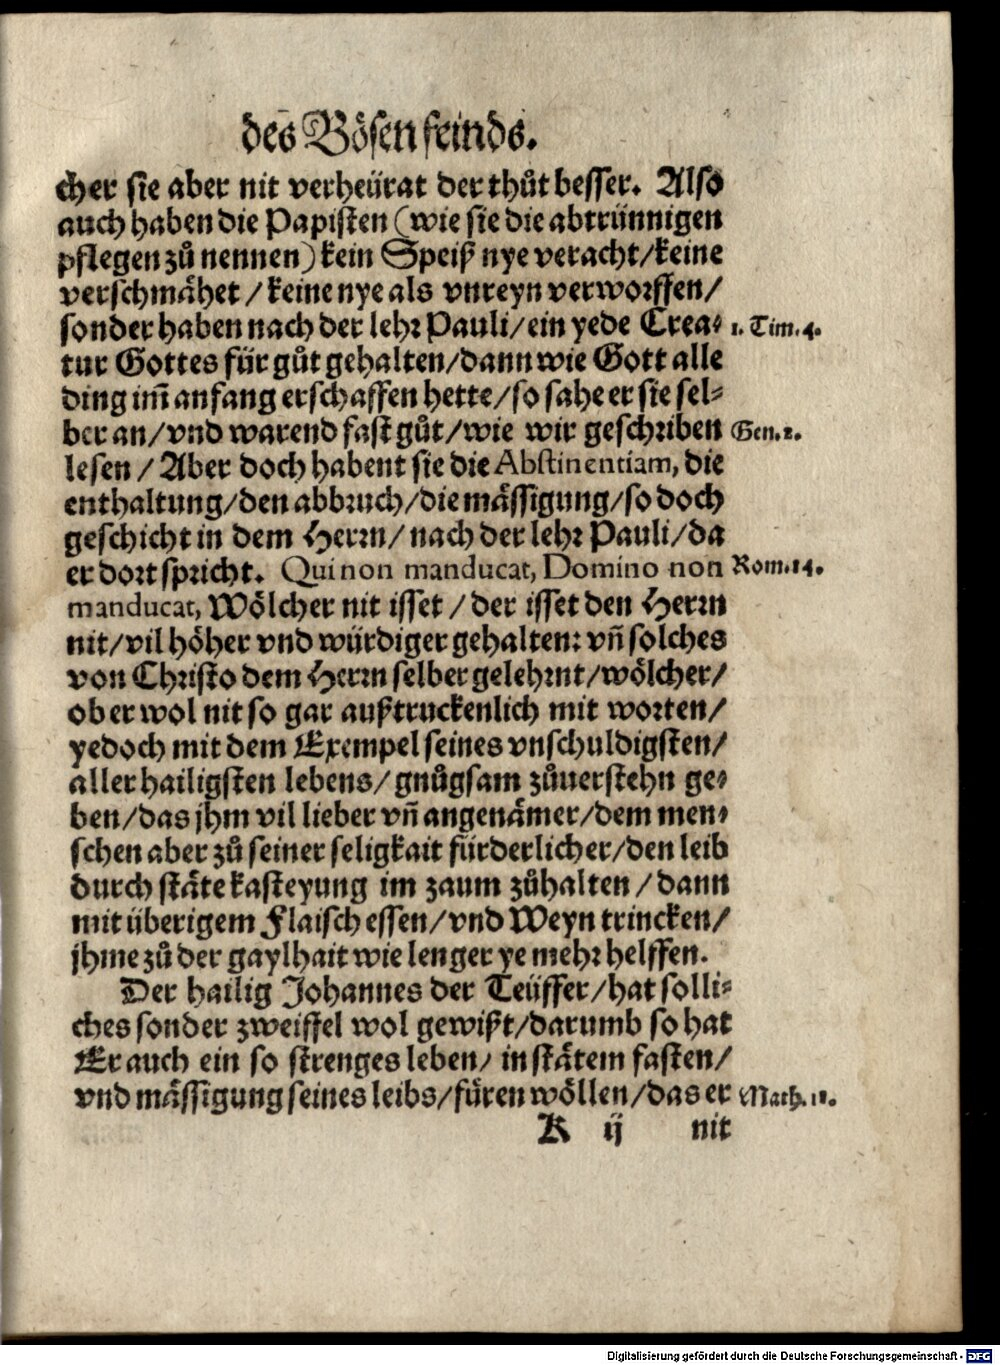 des Bösen feinds.
cher sie aber nit verheürat der thůt besser. Also
auch haben die Papisten (wie sie die abtrünnigen
pflegen zů nennen) kein Speiß nye veracht/ keine
verschmähet / keine nye als vnreyn verworffen/
sonder haben nach der lehr Pauli/ ein yede Crea- 1. Tim. 4.
tur Gottes für gůt gehalten/ dann wie Gott alle
ding im̃ anfang erschaffen hette/ so sahe er sie sel-
ber an/ vnd warend fast gůt/ wie wir geschriben Gen. 1.
lesen / Aber doch habent sie die Abstinentiam, die
enthaltung/ den abbruch/ die mässigung/ so doch
geschicht in dem Herrn/ nach der lehr Pauli/ da
er dort spricht. Qui non manducat, Domino non Rom. 14.
manducat, Wölcher nit isset / der isset den Herrn
nit/ vil höher vnd würdiger gehalten: vñ solches
von Christo dem Herrn selber gelehrnt/ wölcher/
ob er wol nit so gar außtruckenlich mit worten/
yedoch mit dem Exempel seines vnschuldigsten/
aller hailigsten lebens/ gnůgsam zůuerstehn ge-
ben/ das jhm vil lieber vñ angenämer/ dem men-
schen aber zů seiner seligkait fürderlicher/ den leib
durch stäte kasteyung im zaum zůhalten / dann
mit überigem Flaisch essen/ vnd Weyn trincken/
jhme zů der gaylhait wie lenger ye mehr helffen.
Der hailig Johannes der Teüffer/ hat solli-
ches sonder zweiffel wol gewißt/ darumb so hat
Er auch ein so strenges leben/ in stätem fasten/
vnd mässigung seines leibs/ füren wöllen/ das er Math. 11.
K ij nit
Digitalisierung gefördert durch die Deutsche Forschungsgemeinschaft - DFG